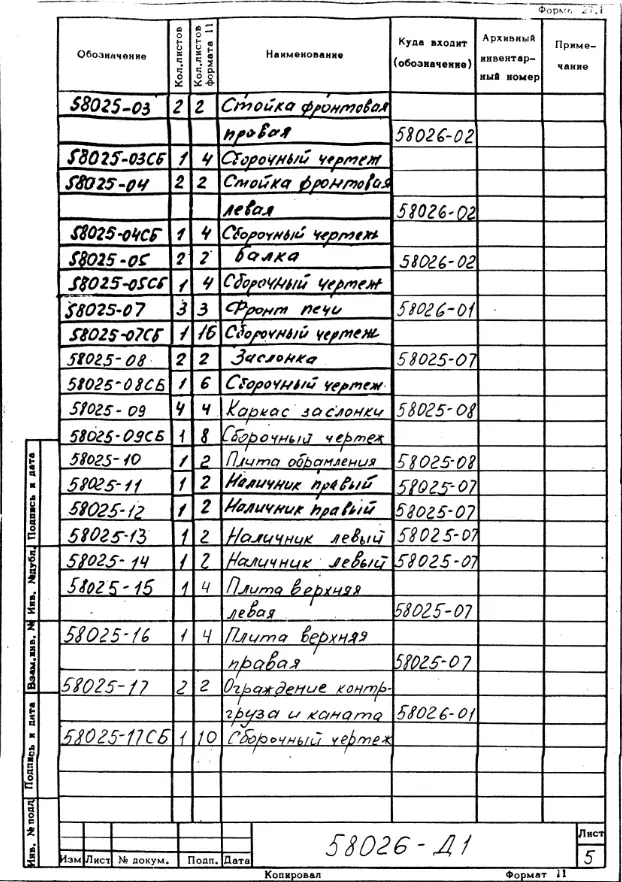 Форма 27.1
Обозначение Кол.листов Кол.листов формата 11 Наименование Куда входит (обозначение) Архивный инвентарный номер Примечание
58025-03 2 2 Стойка фронтовая
правая 58026-02
58025-03СБ 1 4 Сборочный чертеж
58025-04 2 2 Стойка фронтовая
левая 58026-02
58025-04СБ 1 4 Сборочный чертеж
58025-05 2 2 Балка 58026-02
58025-05СБ 1 4 Сборочный чертеж
58025-07 3 3 Фронт печи 58026-01
58025-07СБ 1 16 Сборочный чертеж
58025-08 2 2 Заслонка 58025-07
58025-08СБ 1 6 Сборочный чертеж
58025-09 4 4 Каркас заслонки 58025-08
58025-09СБ 1 8 Сборочный чертеж
58025-10 1 2 Плита обрамления 58025-08
58025-11 1 2 Наличник правый 58025-07
58025-12 1 2 Наличник правый 58025-07
58025-13 1 2 Наличник левый 58025-07
58025-14 1 2 Наличник левый 58025-07
58025-15 1 4 Плита верхняя
левая 58025-07
58025-16 1 4 Плита верхняя
правая 58025-07
58025-17 2 2 Ограждение контр-
груза и каната 58026-01
58025-17СБ 1 10 Сборочный чертеж
Подпись и дата
Инв. №дубл.
Взам.инв. №
Подпись и дата
Инв. №подл
Изм Лист № докум. Подп. Дата
58026-Д1
Лист
5
Копировал Формат 11